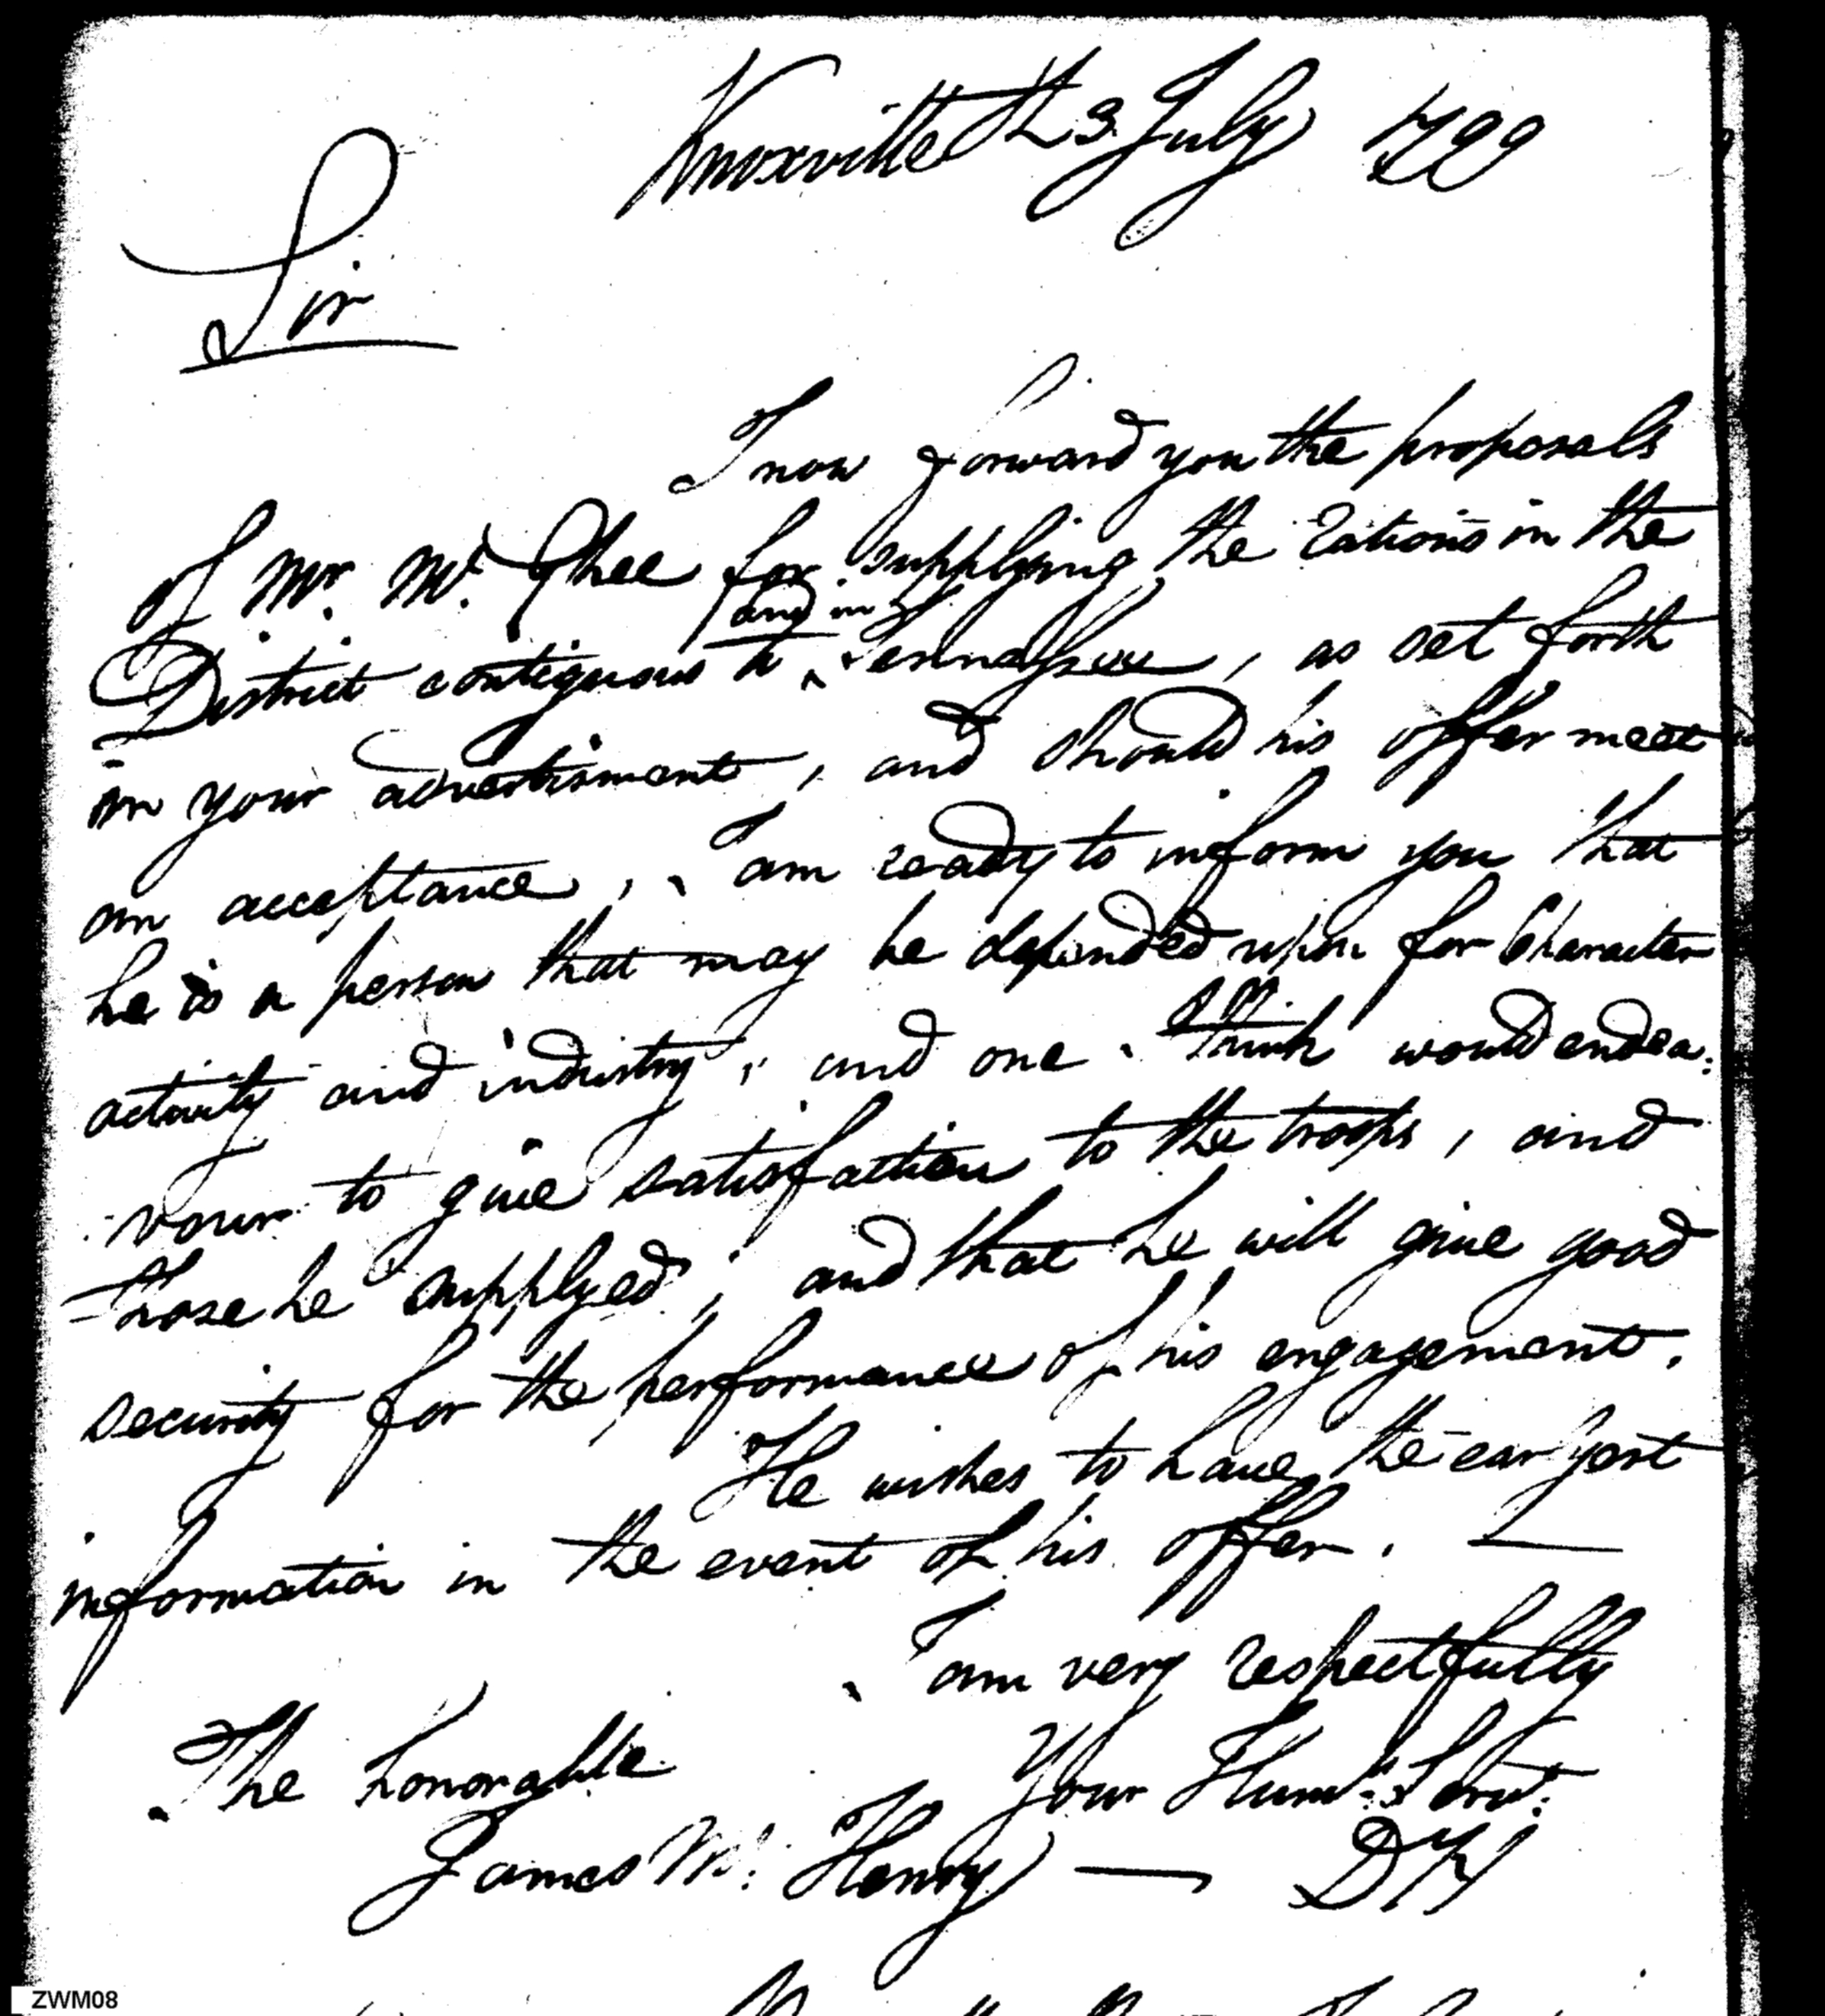 Knoxville the 3 July 1799
Sir
I now forward you the proposals
of Mr. Mc. Ghee for supplying the Rations in the
and in
District contiguous to ^ Tennessee, as set forth
in your advertisment, and should his offer meet
an acceptance, I am ready to inform you that
he is a person that may be depended upon for Character
activity and industry, and one I think would endea:
:vour to give satisfaction to the troops, and
those he supplyed; and that he will give good
security for the performance of his engagement.
He wishes to have the earlyest
information in the event of his offer. —
I am very respectfully
The honorable Your Humb. Servt.
James Mc. Henry — DH
ZWM08